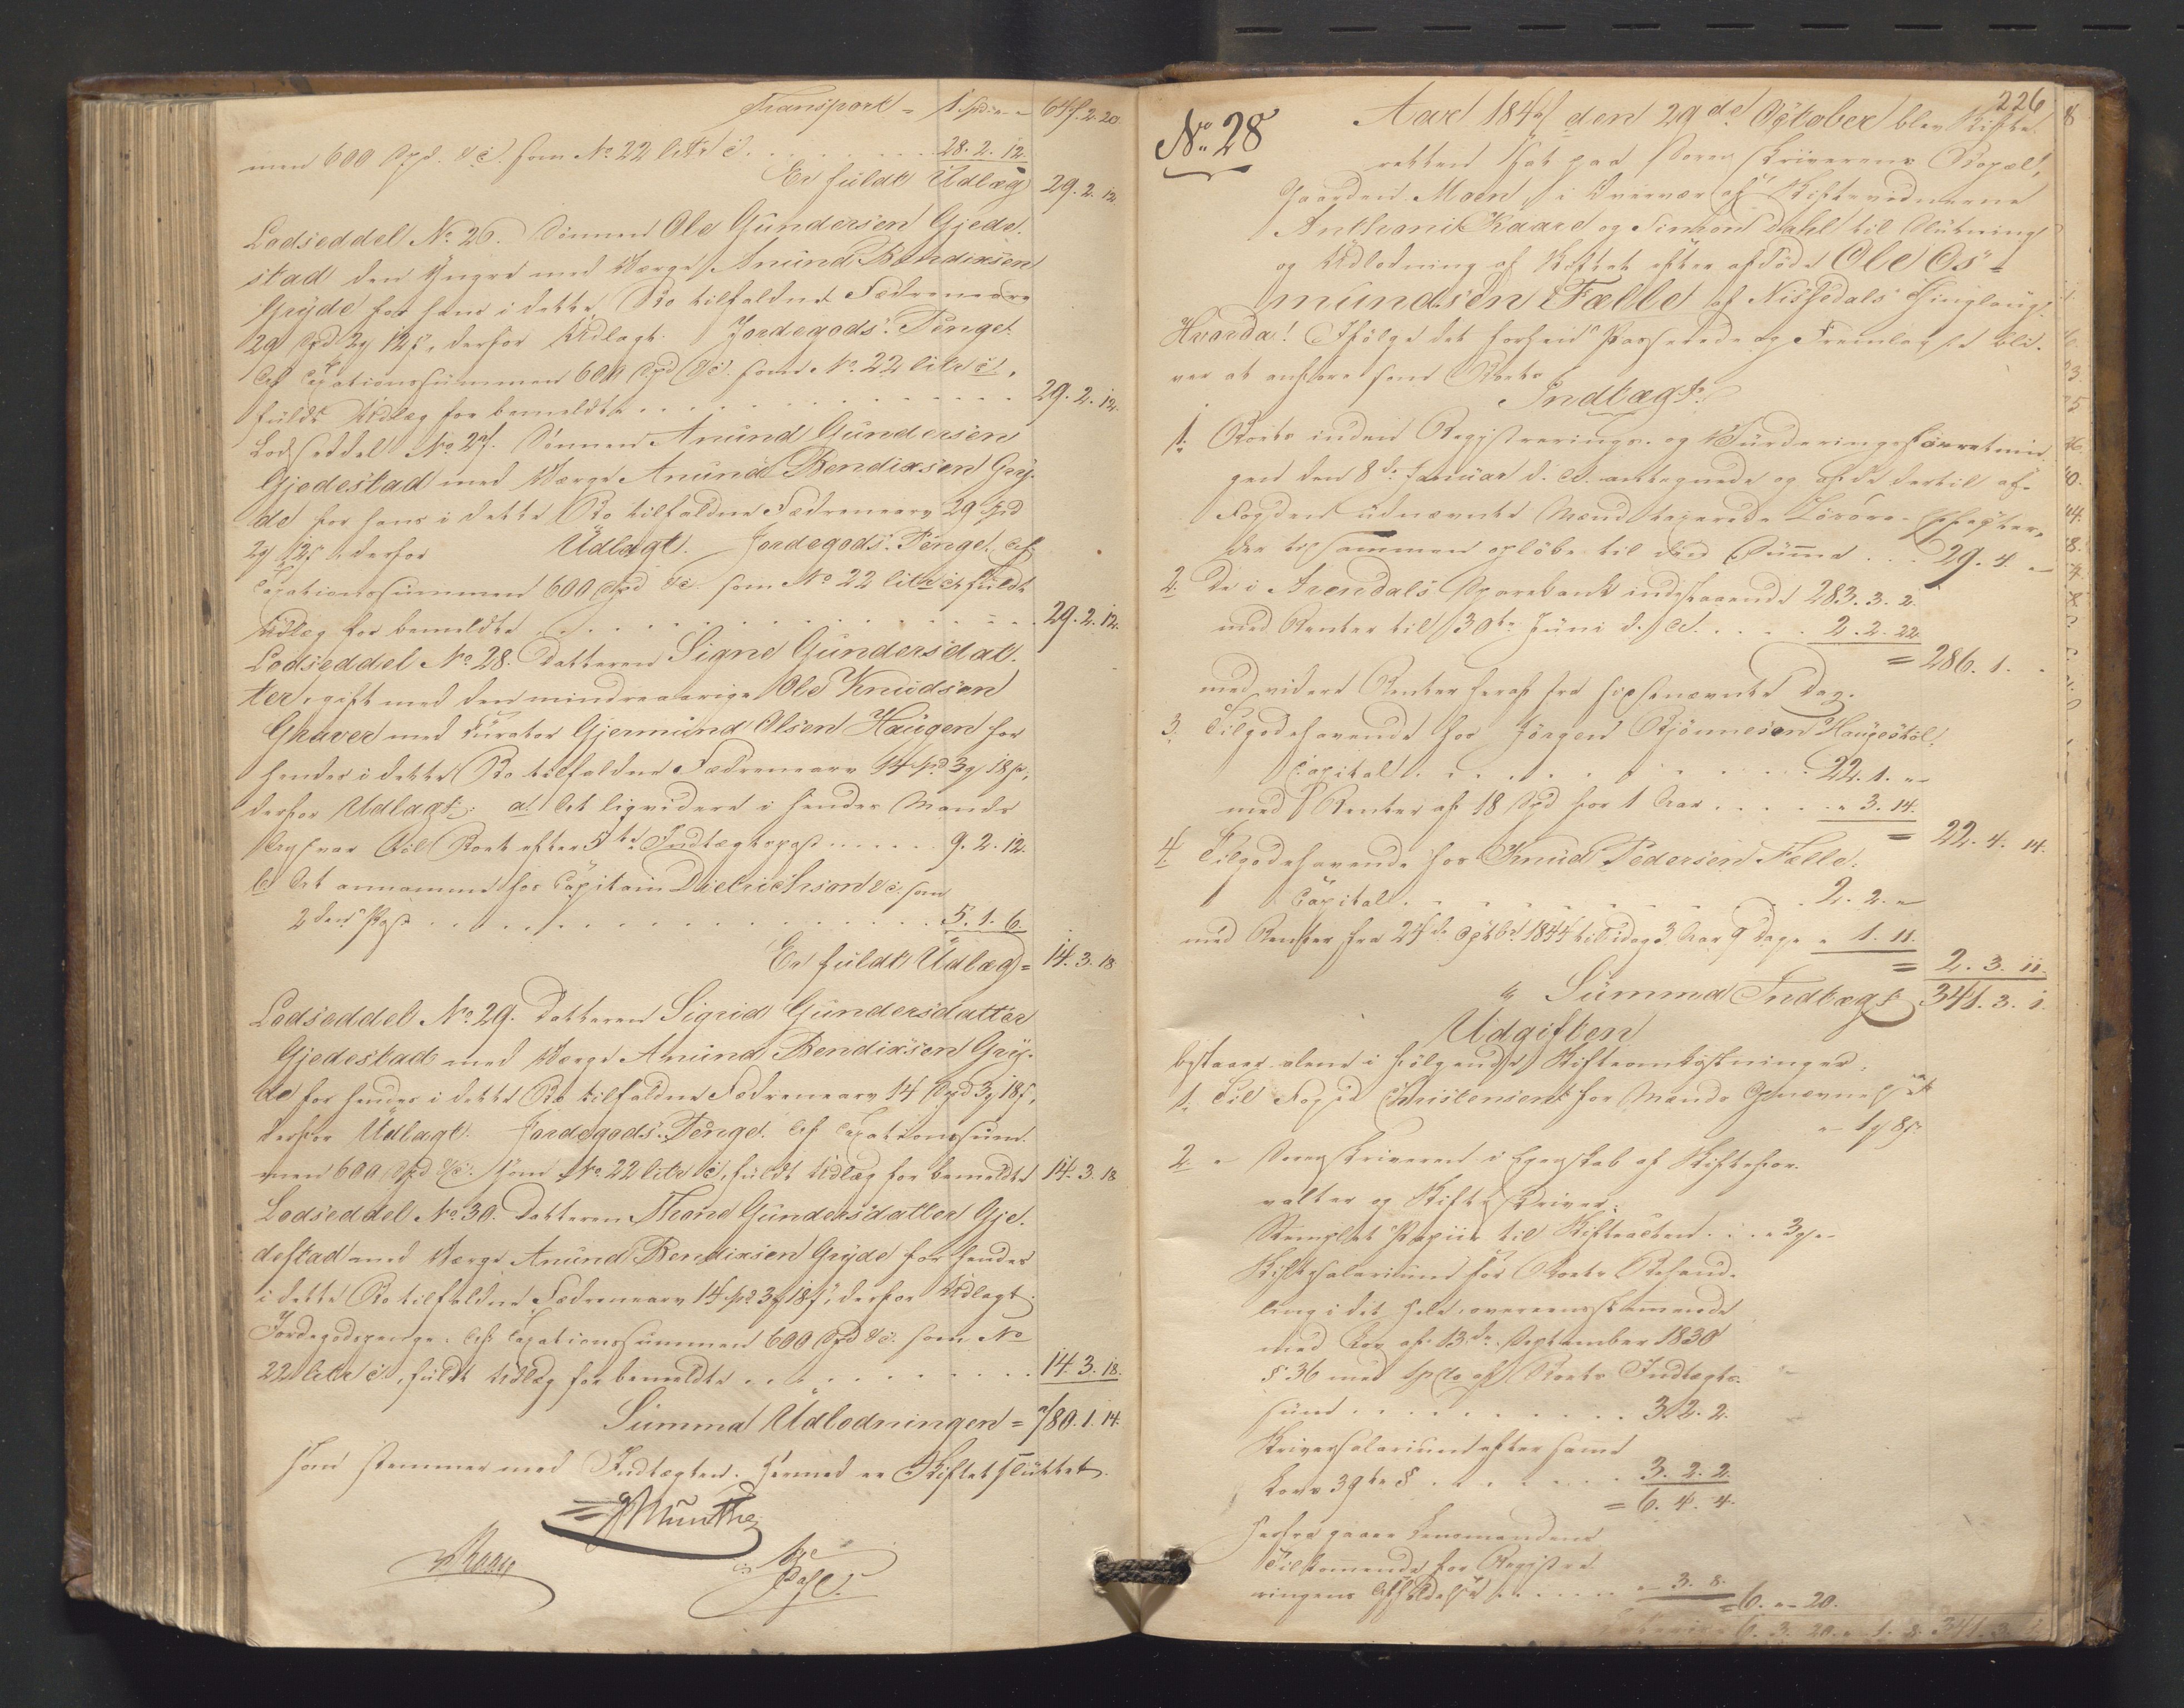 Transport = 1 Spd: " " 647. 2. 20
men 600 Spd. &c. som No 22 litr c. . . . . . . 28. 2. 12.
Er fuldt Udlæg 29. 2. 12
Lodseddel No 26. Sönnen Ole Gundersen Gjede-
stad den Yngre med Værge Anund Bendixsen
Gryde for hans i dette Bo tilfaldne Fædrenearv
29 Spd 2 12 s, derfor Udlagt. Jordegods-Penge.
Af Taxationssummen 600 Spd &c. som No 22 litr c,
fuldt Udlæg for bemeldte . . . . . . . . 29. 2. 12.
Lodseddel No 27. Sönnen Anund Gundersen
Gjedestad med Værge Anund Bendixsen Gry-
de for hans i dette Bo tilfaldne Fædrenearv 29 Spd
2 12 s, derfor Udlagt. Jordegods-Penge. Af
Taxationssummen 600 Spd &c. som No 22 litr c, fuldt
Udlæg for bemeldte . . . . . . . . 29. 2. 12.
Lodseddel No 28. Datteren Signe Gundersdat-
ter, gift med den mindreaarige Ole Knudsen
Ghaver med Curator Gjermund Olsen Haugen for
hendes i dette Bo tilfaldne Fædrenearv 14 Spd 3 18 s,
derfor Udlagt: a. Det liqviderede i hendes Mands
Ansvar til Boet efter 5te Indtægtspost . . . . . 9. 2. 12.
b. Det annammede hos Capitain Dietrichson &c. som
2den Post . . . . . . . . . . 5. 1. 6.
Er fuldt Udlæg = 14. 3. 18
Lodseddel No 29. Datteren Sigrid Gundersdatter
Gjedestad med Værge Anund Bendixsen Gry-
de for hendes i dette Bo tilfaldne Fædrenearv 14 Spd 3 18 s,
derfor Udlagt. Jordegods-Penge. Af Taxationssum-
men 600 Spd &c. som No 22 litr c, fuldt Udlæg for bemeldte 14. 3. 18
Lodseddel No 30. Datteren Thone Gundersdatter Gje-
destad med Værge Anund Bendixsen Gryde for hendes
i dette Bo tilfaldne Fædrenearv 14 Spd 3 18 s, derfor Udlagt.
Jordegodspenge: Af Taxationssummen 600 Spd &c. som No
22 litr c, fuldt Udlæg for bemeldte . . . . . . 14. 3. 18.
Summa Udlodningen = 780. 1. 14.
som stemmer med Indtægten. Hermed er Skiftet sluttet.
Munthe
Kaare
Dahl.
226
No 28
Aar 1847 den 29de October blev Skifte-
retten sat paa Sorenskriverens Bopæl,
Gaarden Moen, i Overvær af Skiftevidnerne
Anthoni Kaare og Simon Dahl til Slutning
og Udlodning af Skiftet efter afdöde Ole Os-
mundsen Fælle af Nissedals Thinglaug.
Hvorda! Ifölge det forhen Passerede og Fremlagte bli-
ver at anföre som Boets
Indtægt.
1. Boets under Registrerings- og Vurderingsforretnin-
gen den 8de Januar d. A. antegnede og af de dertil af
Fogden udnævnte Mænd taxerede Lösöre-Effecter,
der tilsammen oplöbe til den Summa . . . 29. 4 "
2. De i Arendals Sparebank indestaaende 283. 3. 2.
med Renter til 30te Juni d. A. . . . . 2. 2. 22.
= 286. 1. "
med videre Renter heraf fra sidstnævnte Dag.
3. Tilgodehavende hos Jörgen Björnnesen Haugestöl,
Capital . . . . . . . . . 22. 1. "
med Renter af 18 Spd for 1 Aar . . . . " 3. 14.
= 22. 4. 14.
4. Tilgodehavende hos Knud Pedersen Fælle:
Capital . . . . . . . . . 2. 2. "
med Renter fra 24de Octbr 1844 til idag 3 Aar 9 Dage " 1. 11.
= 2. 3. 11.
Summa Indtægt 341. 3. 1.
Udgiften
bestaaer alene i fölgende Skifteomkostninger:
1. Til Foged Christensen for Mænds Opnævnelse
" 1 8 s
2. " Sorenskriveren i Egenskab af Skiftefor-
valter og Skifteskriver:
Stemplet Papiir til Skifteacten . . " 3 "
Skiftesalarium for Boets Behand-
ling i det Hele, overeensstemmende
med Lov af 13de September 1830
§ 36 med 1 pCto af Boets Indtægts-
sum . . . . . . . . . . 3. 2. 2.
Skriversalarium efter samme
Lovs 39te § . . . . . . 3. 2. 2.
= 6. 4. 4.
herfra gaaer Lensmandens
Tilkommende for Registre-
ringens Afholdelse . . . . . " 3. 8.
= 6. " 20.
6. 3. 20. " 1. 8. 341. 3. 1.